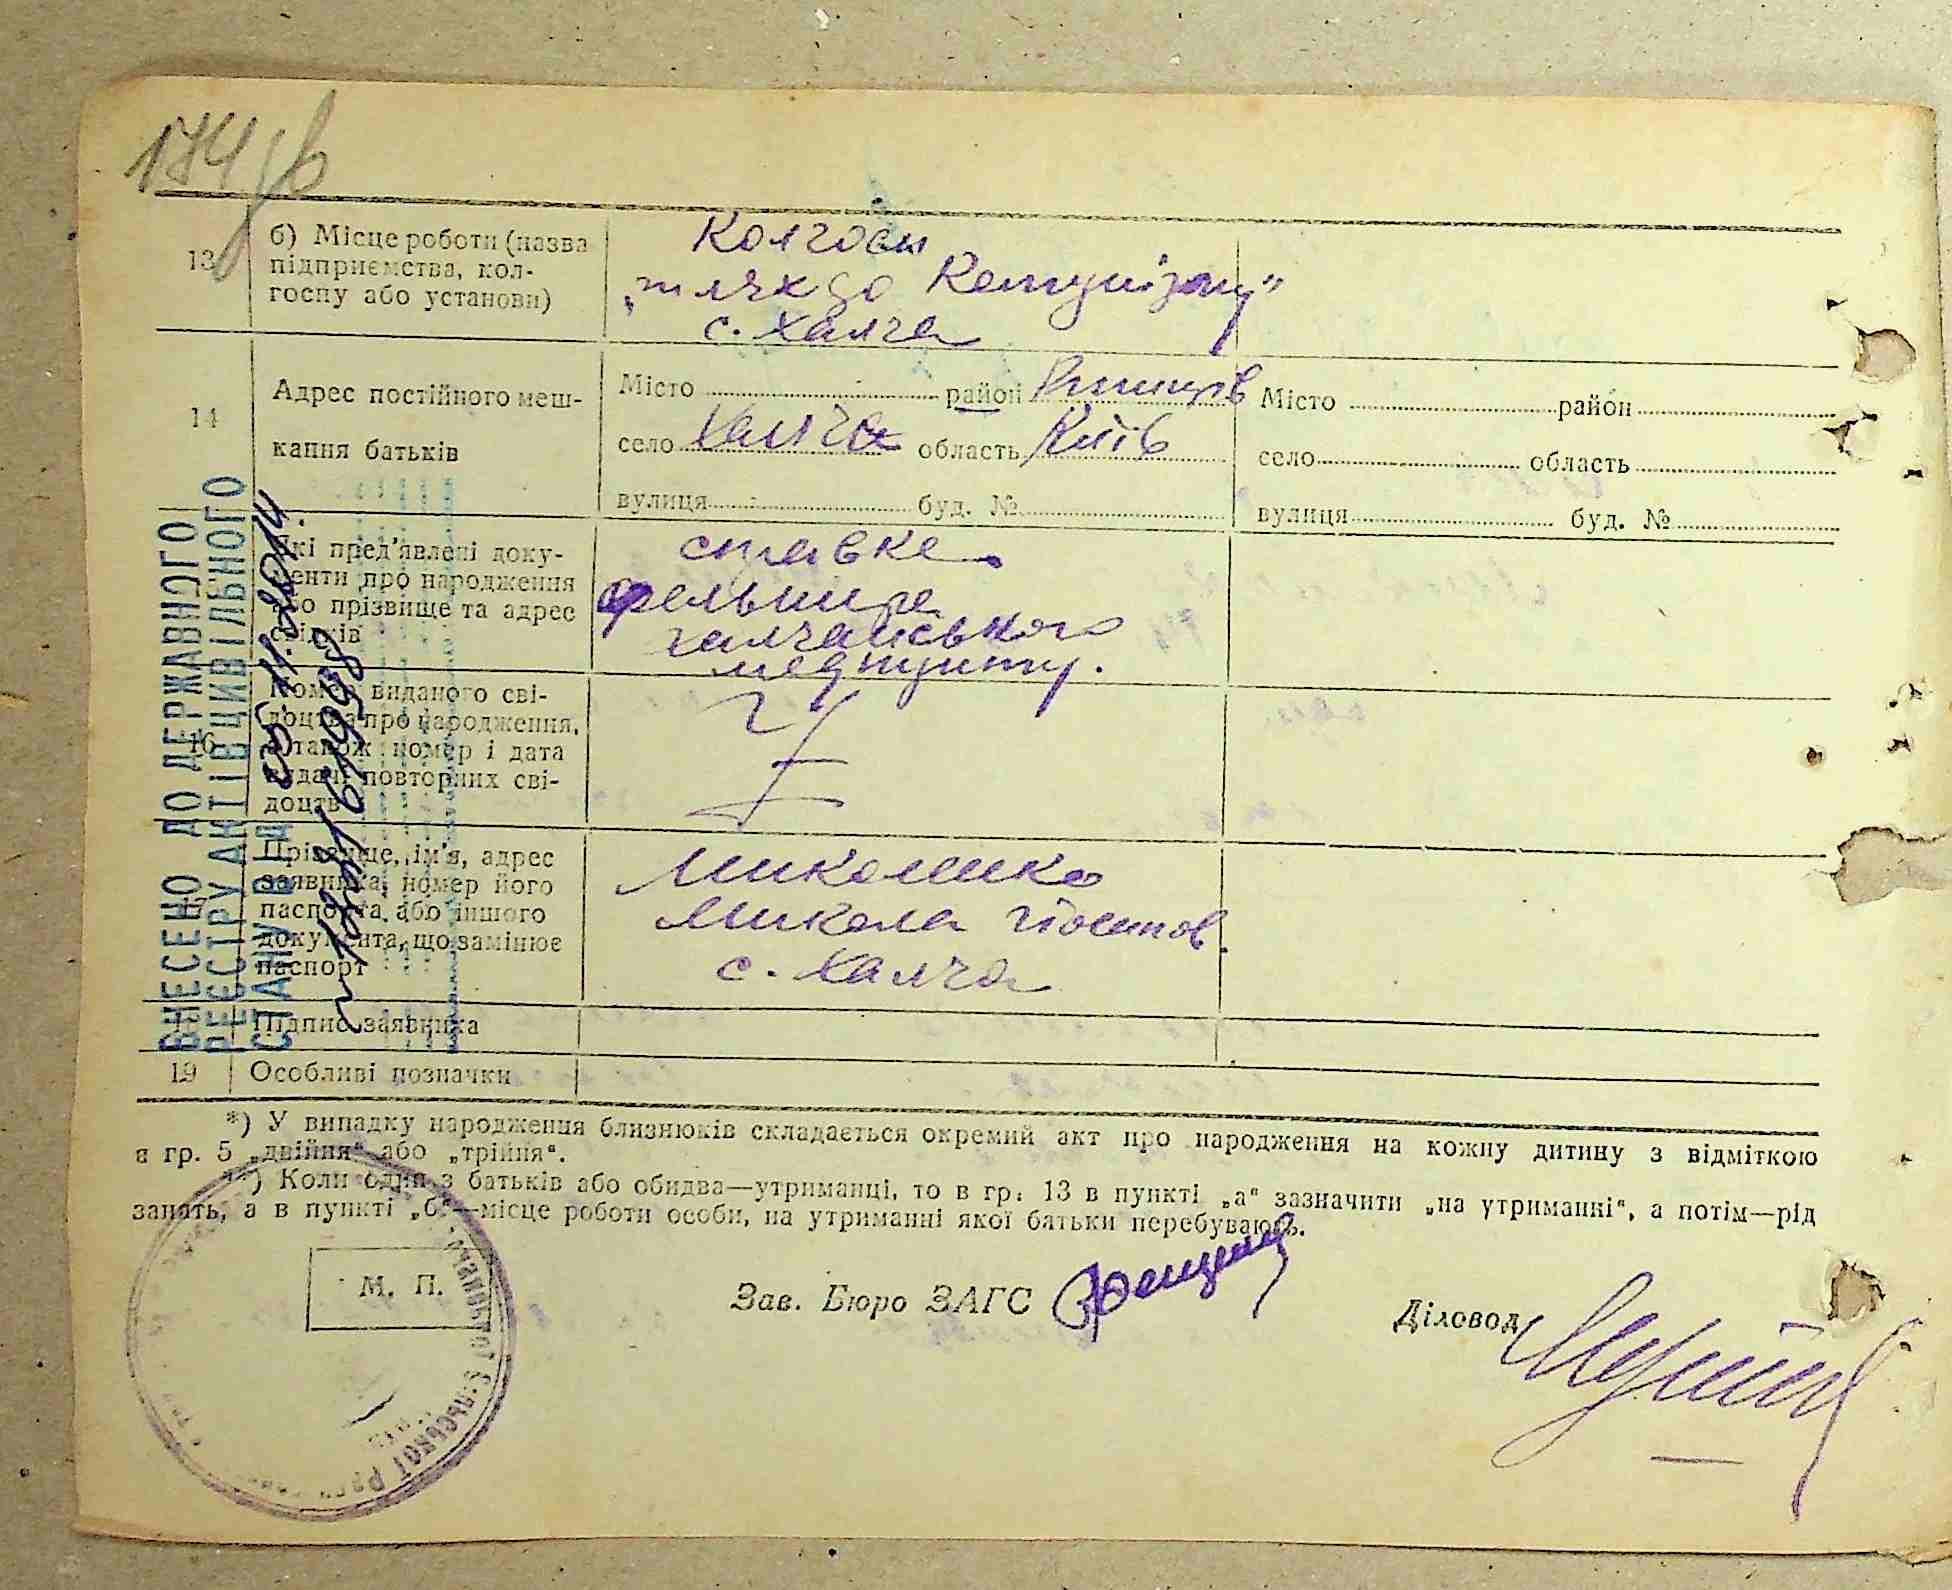 174 зв
13 б) Місце роботи (назва підприємства, колгоспу або установи)
Колгосп
„шлях до Комунізму"
с. Халча
14 Адрес постійного мешкання батьків
Місто район Ржищів Місто район
село Халча область Київ село область
вулиця буд. № вулиця буд. №
Які пред'явлені документи про народження або прізвище та адрес свідків
справка
фельшера
халчанського
медпункту.
16 Номер виданого свідоцтва про народження, а також номер і дата видачі повторних свідоцтв
17 Прізвище, ім'я, адрес заявника, номер його паспорта або іншого документа, що замінює паспорт
Миколенко
Микола Йосипов.
с. Халча
18 Підпис заявника
19 Особливі позначки
ВНЕСЕНО ДО ДЕРЖАВНОГО
РЕЄСТРУ АКТІВ ЦИВІЛЬНОГО
СТАНУ
*) У випадку народження близнюків складається окремий акт про народження на кожну дитину з відміткою
в гр. 5 „двійня" або „трійня".
**) Коли один з батьків або обидва—утриманці, то в гр. 13 в пункті „а" зазначити „на утриманні", а потім—рід
занять, а в пункті „б"—місце роботи особи, на утриманні якої батьки перебувають.
М. П.
Зав. Бюро ЗАГС
Діловод